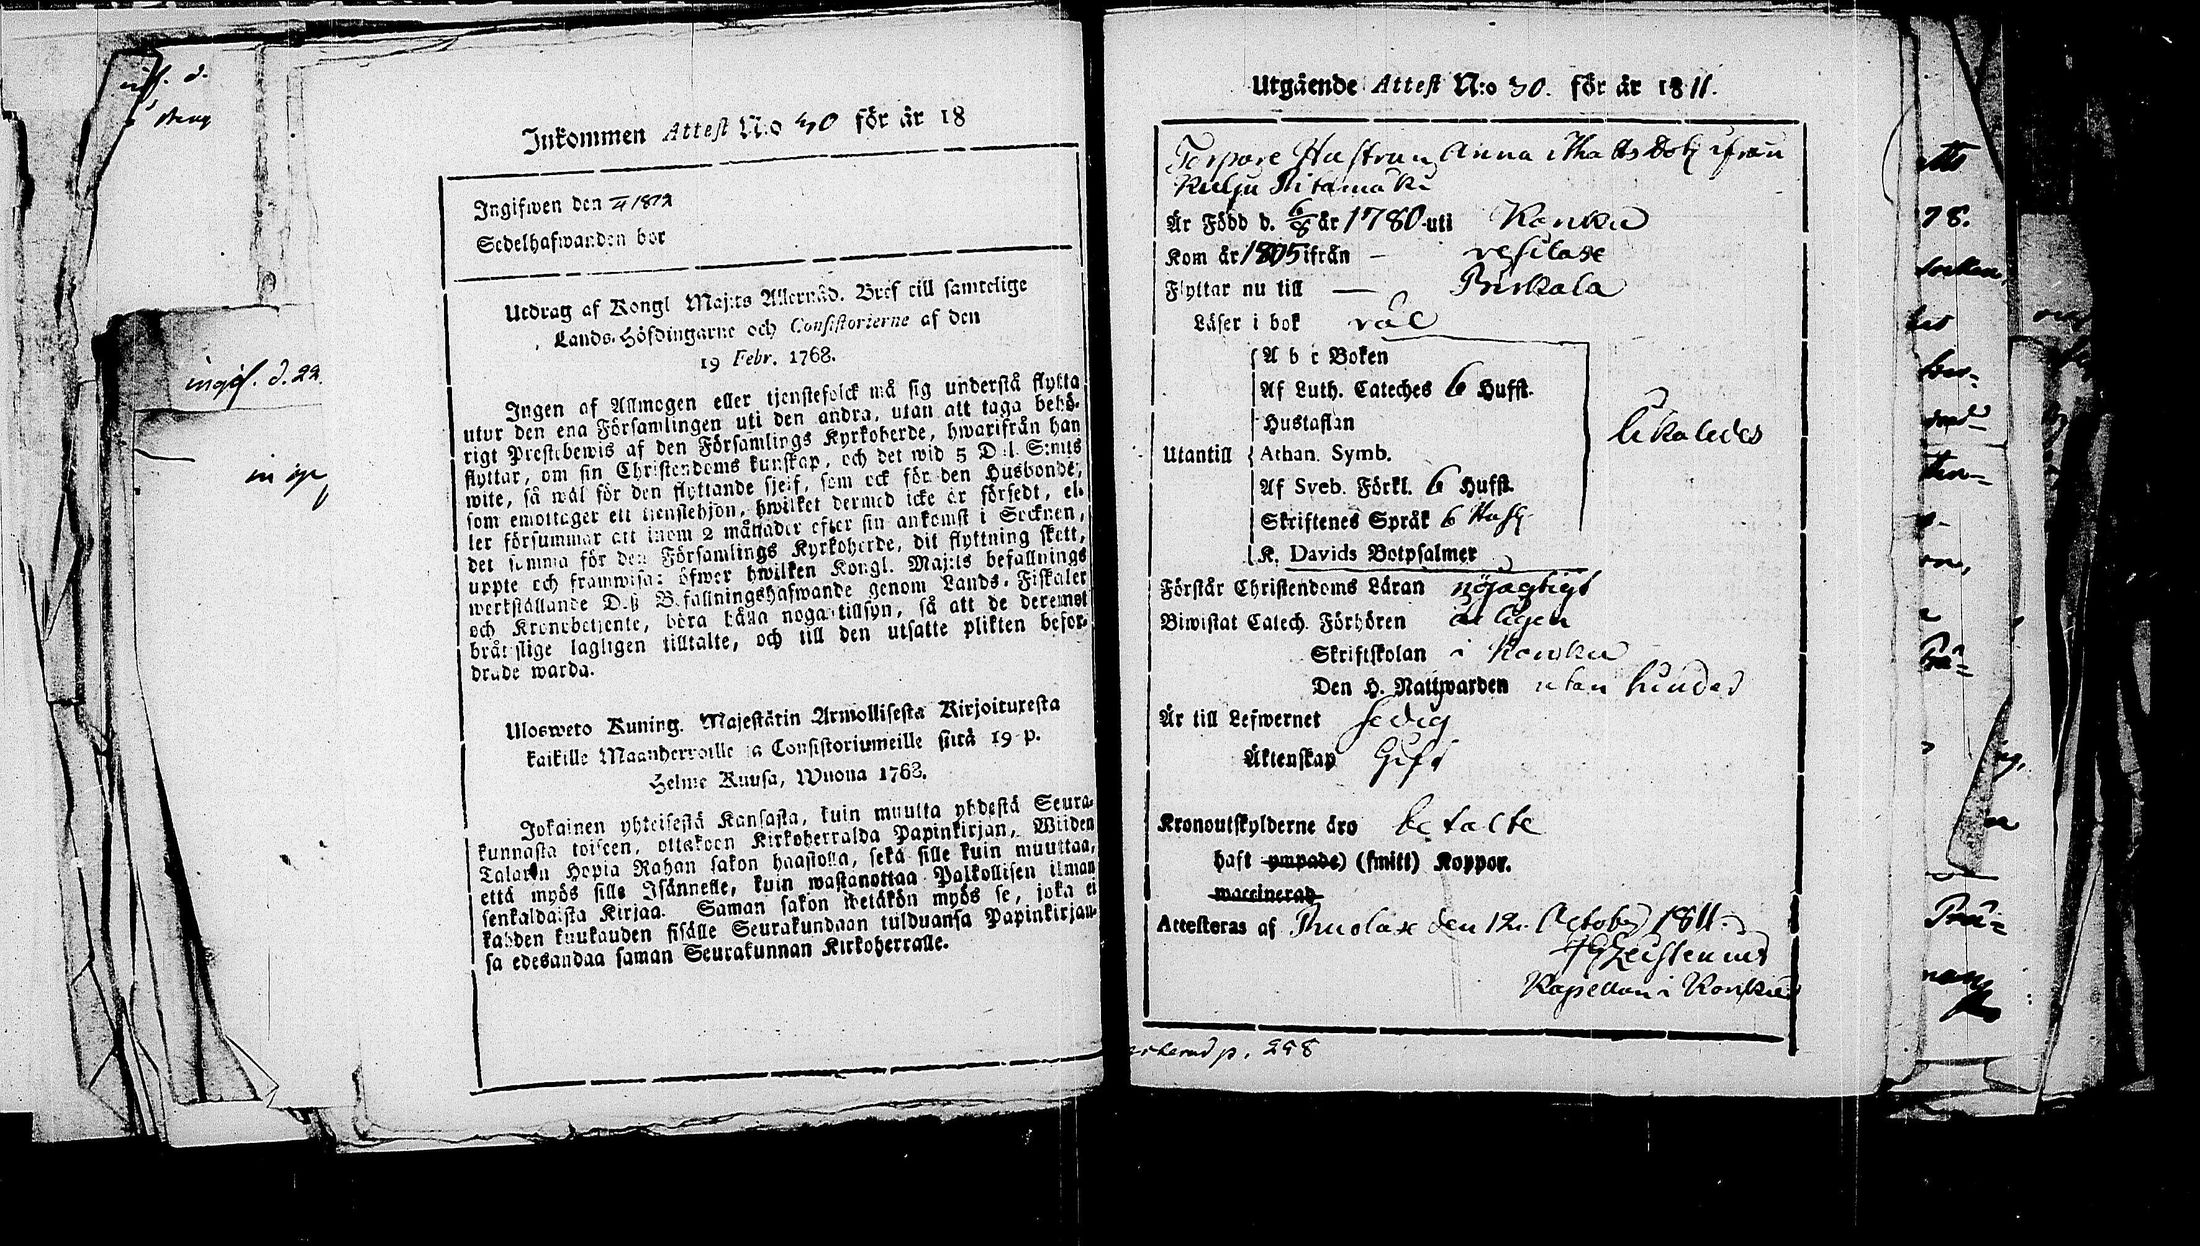 inf. d.
ingif. d. 22.
Inkommen Attest N:o 40 för år 18
Ingifwen den 1812
Sedelhafwanden bor
Utdrag af Kongl Maj:ts Allernåd. Bref till samtelige
Lands-Höfdingarne och Consistorierne af den
19 Febr. 1768.
Ingen af Allmogen eller tjenstefolck må sig understå flytta
utur den ena Församlingen uti den andra, utan att taga behö-
rigt Prestebewis af den Församlings Kyrkoherde, hwarifrån han
flyttar, om sin Christendoms kunskap, och det wid 5 Dal. S:mts
wite, så wäl för den flyttande sjelf, som ock för den Husbonde,
som emottager ett tjenstehjon, hwilket dermed icke är försedt, el-
ler försummar att inom 2 månader efter sin ankomst i Socknen,
det samma för den Församlings Kyrkoherde, dit flyttning skett,
uppte och framwisa: öfwer hwilken Kongl. Maj:ts befallnings
werkställande Deß Befallningshafwande genom Lands-Fiskaler
och Kronobetjente, böra hålla noga tillsyn, så att de deremot
bråtslige lagligen tilltalte, och till den utsatte plikten befor-
drade warda.
Ulosweto Kuning. Majestätin Armollisesta Kirjoituresta
kaikille Maanherroille ja Consistoriumeille siitä 19 p.
Helme Kuusa, Wuona 1768.
Jokainen yhteisestä Kansasta, kuin muutta yhdestä Seura-
kunnasta toiseen, ottakoon Kirkoherralda Papinkirjan, Wiiden
Talarin Hopia Rahan sakon haastolla, sekä sille kuin muuttaa,
että myös sille Isännelle, kuin wastanottaa Palkollisen ilman
senkaldaista Kirjaa. Saman sakon wetäkön myös se, joka ei
kahden kuukauden sisälle Seurakundaan tulduansa Papinkirjan-
sa edesandaa saman Seurakunnan Kirkoherralle.
Utgående Attest N:o 30. för år 1811.
Torpare Hustrun Anna Matts Dotr ifrån
Kulju
Är Född d. 6/8 år 1780 uti Konku
Kom år 1805 ifrån — Vesilax
Flyttar nu till — Birkala
Läser i bok väl
A b c Boken
Af Luth. Cateches 6 Hufst.
Hustaflan
Utantill Athan. Symb.
Af Sveb. Förkl. 6 Hufst.
Skriftenes Språk 6 Hufst
K. Davids Botpsalmer
likaledes
Förstår Christendoms Läran nöjagtigt
Biwistat Catech. Förhören årligen
Skriftskolan i Konku
Den H. Nattwarden utan hinder
Är till Lefwernet sedig
Äktenskap Gift
Kronoutskylderne äro betalte
haft ympade) (smitt) Koppor.
waccinerad
Attesteras af Thuolax den 12. October 1811.
Kapellan i Konku
p. 298
78.